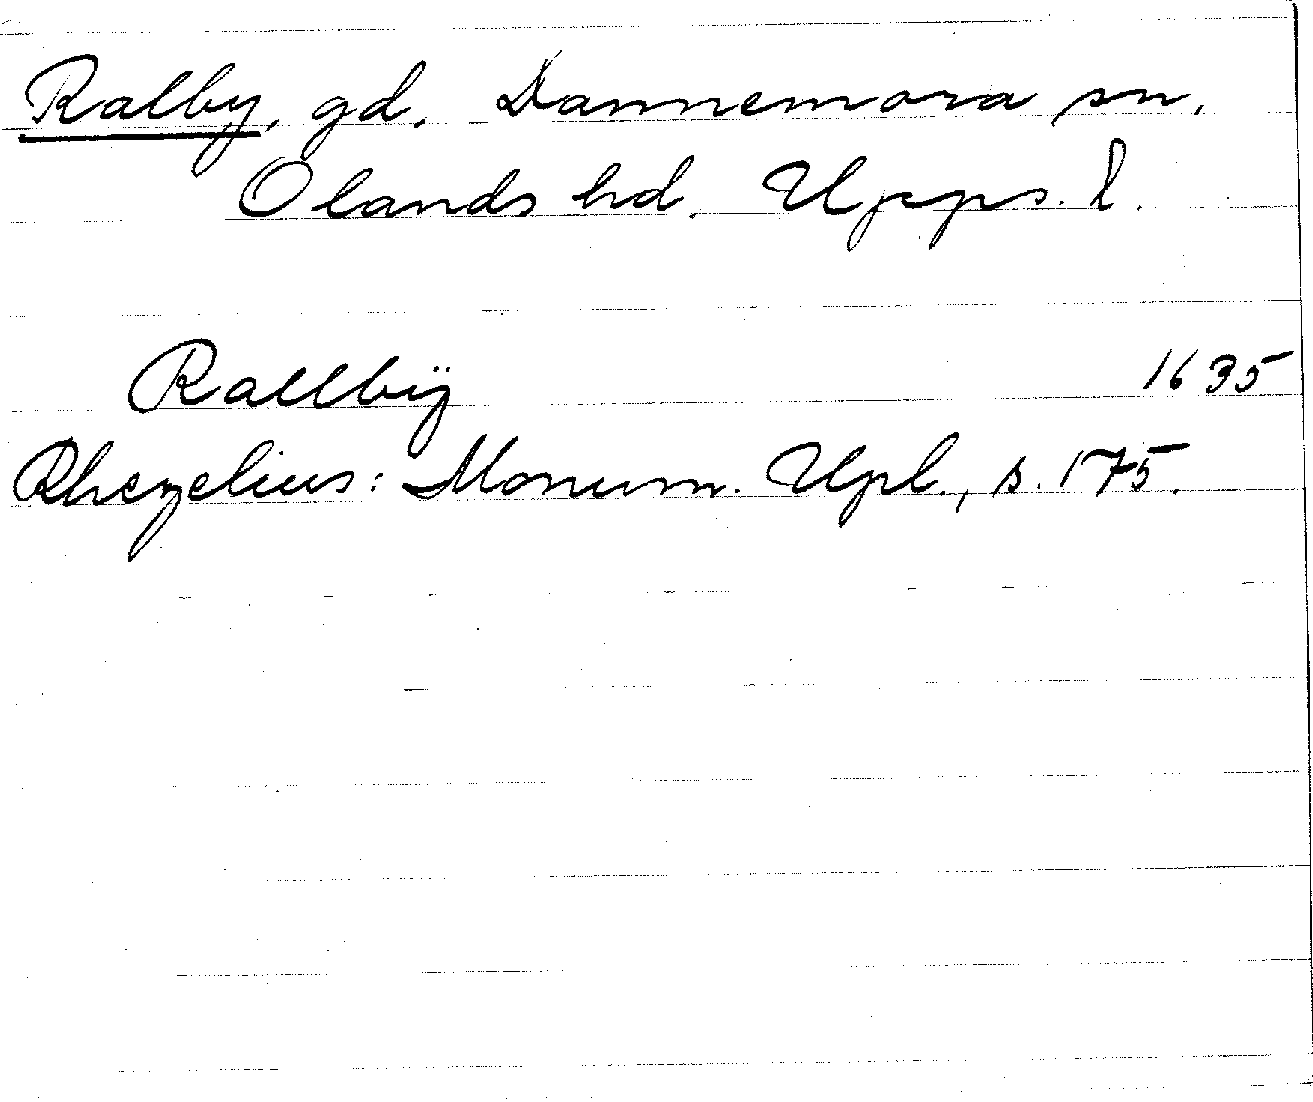 Ralby, gd. Dannemora sn.
Olands hd. Upps. l.
Rallbÿ 1635
Rhezelius: Monum. Upl., s. 175.